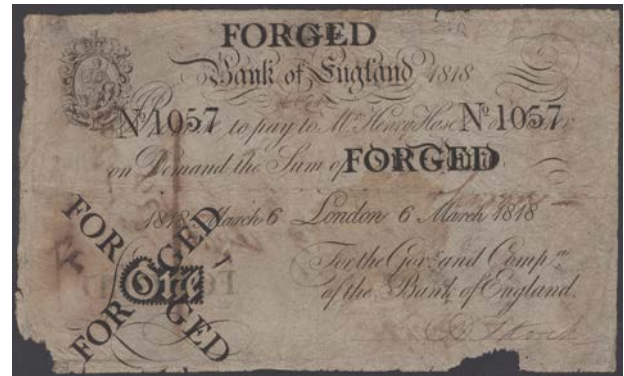 FORGED
Bank of England 1818
Nº 1057 to pay to Mr. Henry Hase Nº 1057 or
on Demand the Sum of FORGED
1818 March 6 London 6 March 1818
For the Govr. and Compa.
of the Bank of England.
FORGED
One
FORGED